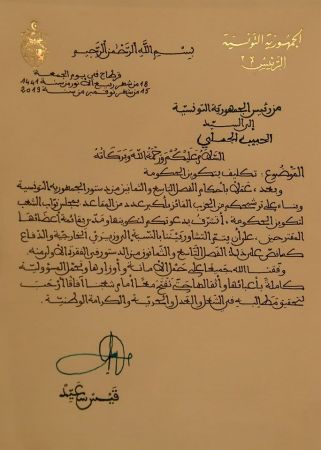 الجمهورية التونسية
الرئيس
بسم الله الرحمن الرحيم
قرطاج في يوم الجمعة
18 من شهر ربيع الأنور من سنة 1441
15 من شهر نوفمبر من سنة 2019
من رئيس الجمهورية التونسية
إلى السيد
الحبيب الجملي
السلام عليكم ورحمة الله وبركاته
الموضوع: تكليف بتكوين الحكومة
وبعد، عملا بأحكام الفصل التاسع والثمانين من دستور الجمهورية التونسية
وبناء على ترشحكم من الحزب الفائز بأكبر عدد من المقاعد بمجلس نواب الشعب
لتكوين الحكومة، أتشرف بدعوتكم لتكوينها ومدي بقائمة أعضائها
المقترحين، على أن يتم التشاور بيننا بالنسبة إلى وزيري الخارجية والدفاع
كما نص على ذلك الفصل التاسع والثمانون من الدستور في الفقرة الأولى منه.
وفقنا الله جميعا على حمل الأمانة وأوزارها وتحمل المسؤولية
كاملة بأعبائها وأثقالها حتى نفتح معا أمام شعبنا آفاقا أرحب
لتحقيق مطالبه في الشغل والعدل والحرية والكرامة الوطنية.
قيس سعيد